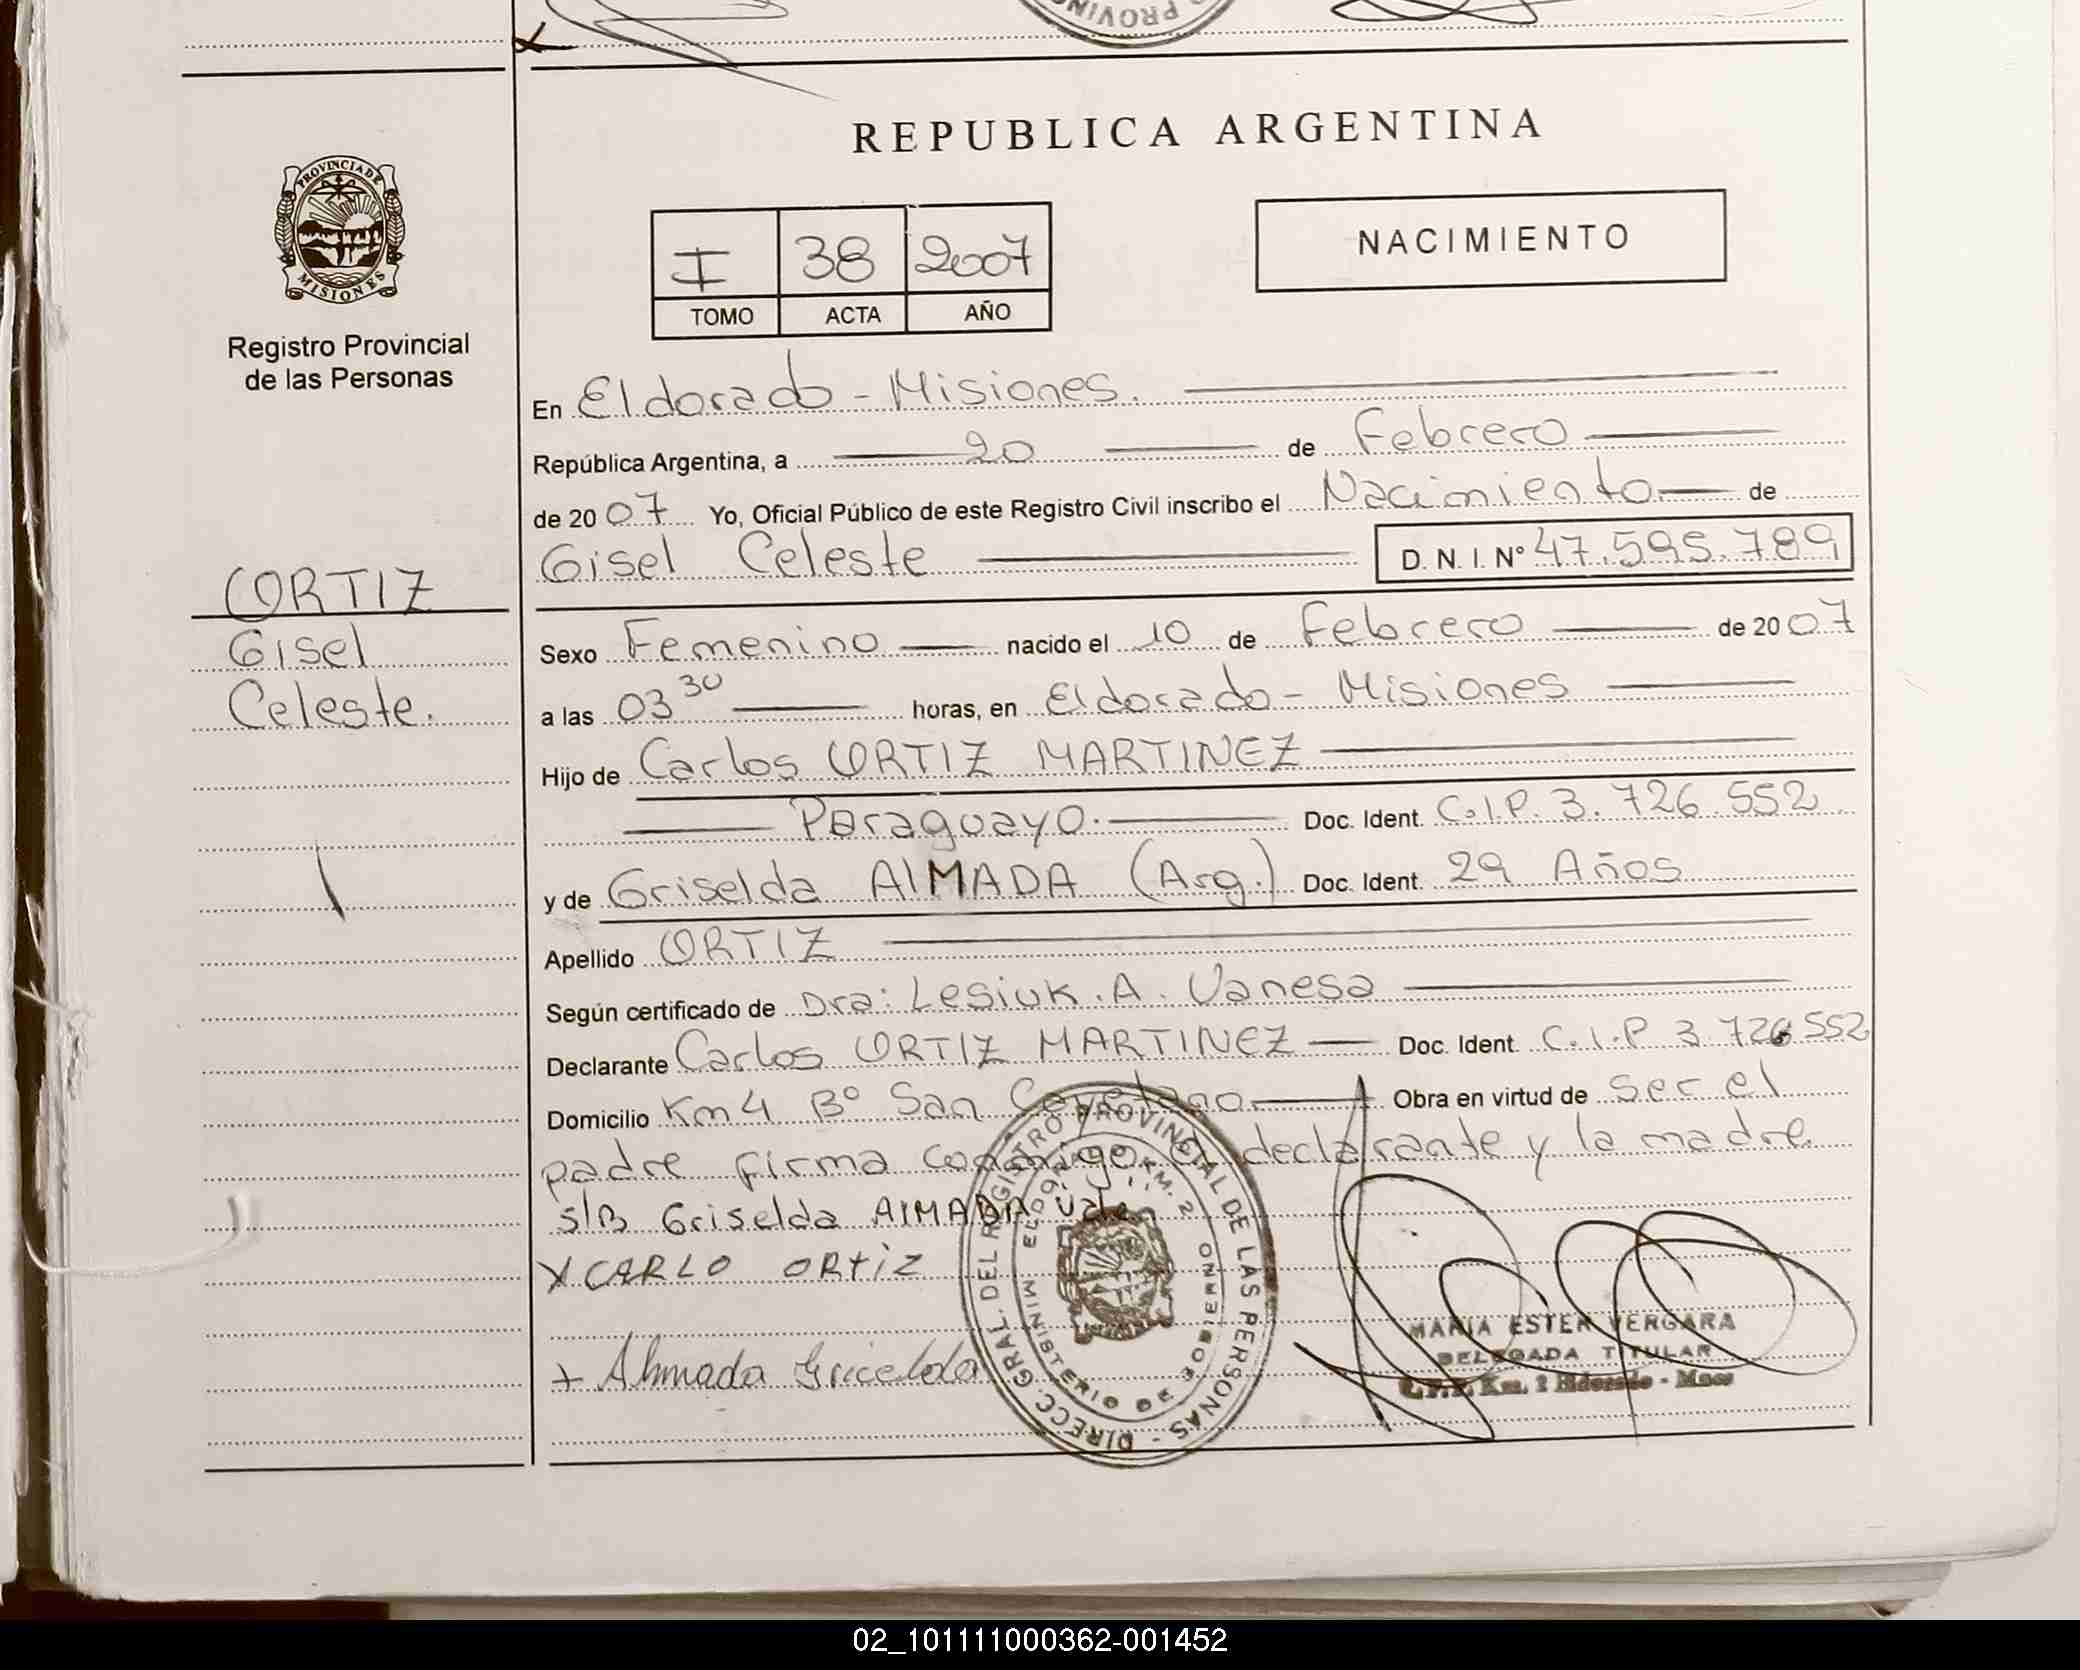 PROVIN
REPUBLICA ARGENTINA
PROVINCIA DE
MISIONES
Registro Provincial
de las Personas
I 38 2007
TOMO ACTA AÑO
NACIMIENTO
En Eldorado - Misiones.
República Argentina, a 20 de Febrero
de 2007 Yo, Oficial Público de este Registro Civil inscribo el Nacimiento de
Gisel Celeste D. N. I. Nº 47.595.789
ORTIZ
Gisel
Celeste.
Sexo Femenino nacido el 10 de Febrero de 2007
a las 03 30 horas, en Eldorado - Misiones
Hijo de Carlos ORTIZ MARTINEZ
Paraguayo. Doc. Ident. C.I.P. 3.726.552
y de Griselda AlMADA (Arg.) Doc. Ident. 29 Años
Apellido ORTIZ
Según certificado de Dra: Lesiuk. A. Vanesa
Declarante Carlos ORTIZ MARTINEZ Doc. Ident. C.I.P 3.726.552
Domicilio Km 4 Bº San Cayetano. Obra en virtud de ser el
padre firma conmigo el declarante y la madre
s/B Griselda AlMADA Vale
X CARLO ORTIZ
+ Almada Gricelda
DIRECC. GRAL. DEL REGISTRO PROVINCIAL DE LAS PERSONAS -
MINISTERIO DE GOBIERNO
ELDORADO KM. 2
MARIA ESTER VERGARA
DELEGADA TITULAR
Km. 2 Eldorado - Mnes
02_101111000362-001452